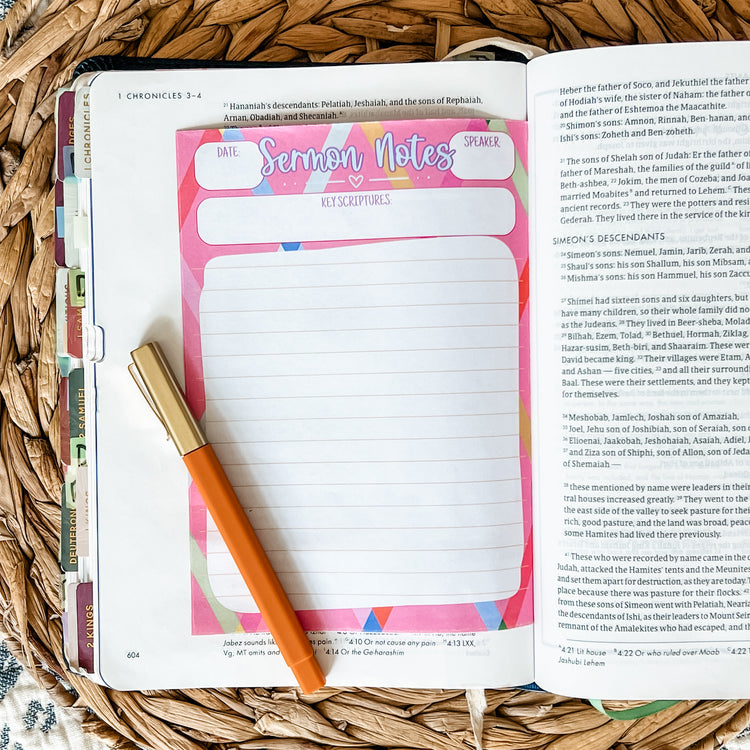 1 CHRONICLES 3–4
21 Hananiah's descendants: Pelatiah, Jeshaiah, and the sons of Rephaiah,
Arnan, Obadiah, and Shecaniah.
DATE:
Sermon Notes
SPEAKER:
KEY SCRIPTURES:
604
Jabez sounds like
as pain.
4:10 Or not cause any pain
4:13 LXX,
Vg; MT omits and
4:14 Or the Ge-harashim
CHRONICLES
1 SAM
2 SAMUEL
DEUTERON
KINGS
2 KINGS
Heber the father of Soco, and Jekuthiel the father
of Hodiah's wife, the sister of Naham: the father of
and the father of Eshtemoa the Maacathite.
20 Shimon's sons: Amnon, Rinnah, Ben-hanan, and
Ishi's sons: Zoheth and Ben-zoheth.
21 The sons of Shelah son of Judah: Er the father of
father of Mareshah, the families of the guild of
Beth-ashbea, 22 Jokim, the men of Cozeba; and Joash
married Moabites and returned to Lehem. These
ancient records. 23 They were the potters and resi
Gederah. They lived there in the service of the kin
SIMEON'S DESCENDANTS
24 Simeon's sons: Nemuel, Jamin, Jarib, Zerah, and
25 Shaul's sons: his son Shallum, his son Mibsam, a
26 Mishma's sons: his son Hammuel, his son Zacc
27 Shimei had sixteen sons and six daughters, but
have many children, so their whole family did no
as the Judeans. 28 They lived in Beer-sheba, Molad
29 Bilhah, Ezem, Tolad, 30 Bethuel, Hormah, Ziklag,
Hazar-susim, Beth-biri, and Shaaraim. These were
David became king. 32 Their villages were Etam, A
and Ashan — five cities, 33 and all their surroundi
Baal. These were their settlements, and they kept
for themselves.
34 Meshobab, Jamlech, Joshah son of Amaziah,
35 Joel, Jehu son of Joshibiah, son of Seraiah, son o
36 Elioenai, Jaakobah, Jeshohaiah, Asaiah, Adiel, J
37 and Ziza son of Shiphi, son of Allon, son of Jeda
of Shemaiah —
38 these mentioned by name were leaders in their
tral houses increased greatly. 39 They went to the
the east side of the valley to seek pasture for their
rich, good pasture, and the land was broad, peace
some Hamites had lived there previously.
41 These who were recorded by name came in the d
Judah, attacked the Hamites' tents and the Meunites
and set them apart for destruction, as they are today. T
place because there was pasture for their flocks. 42
from these sons of Simeon went with Pelatiah, Neari
the descendants of Ishi, as their leaders to Mount Seir
remnant of the Amalekites who had escaped, and th
4:21 Lit house
4:22 Or who ruled over Moab
4:22 T
Jashubi Lehem